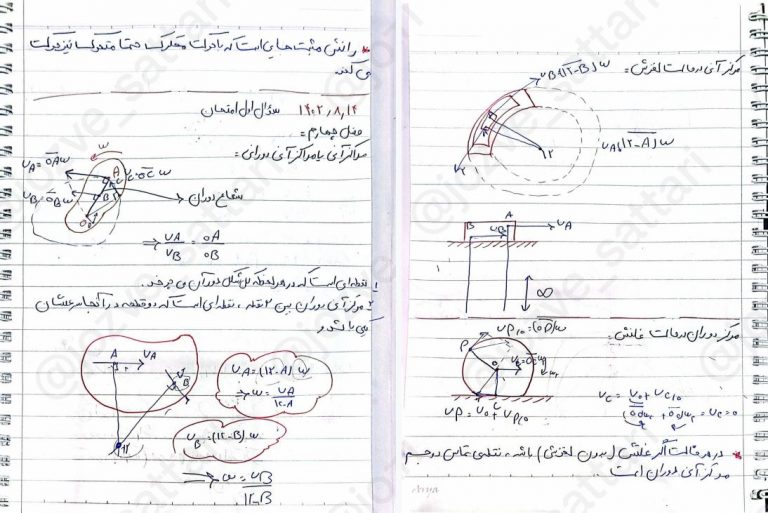 * رانش مثبت هایی است که با حرکت محرک، حتما متحرک نیز حرکت
می کند.
۱۴۰۲,۸,۱۴ سوال اول امتحان
فصل چهارم =
مراکز آنی یا مراکز آنی دورانی:
w
VA = OA w
VB = OB w
VC = OC w
شعاع دوران
⇒ VA / VB = OA / OB
۱ نقطه ای است که در هر لحظه کل شکل دور آن می چرخد.
۲ مرکز آنی دوران بین ۲ قطعه، نقطه ای است که دو قطعه در آنجا سرعتشان
A VA
B
12
VA = (12-A) w
⇒ w = VA / 12-A
VB = (12-B) w
⇒ w = VB / 12-B
مرکز آنی در حالت لغزش:
VB = (12-B) w
VA = (12-A) w
12
B A VA
VB
∞
مرکز دوران در حالت غلتش:
VP/O = (OP) w
P
VC = VO + VC/O
VP = VO + VP/O
VC = 0
* در هر حالت اگر غلتش (بدون لغزش) باشد، نقطه ی تماس دو جسم
مرکز آنی دوران است.
@jozve_sattari